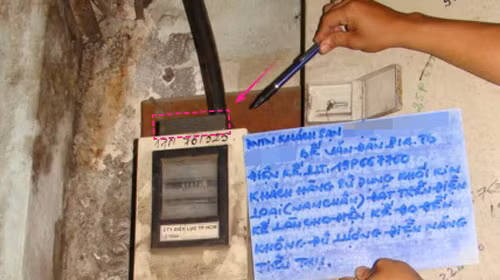 177 761525
CTY ĐIỆN LỰC TP HCM
KHÁCH SẠN
ĐỂ VẤN ĐÂN BIA.TĐ
ĐIỆN KẾ S.T: 15P667760
KHÁCH HÀNG SỬ DỤNG KHỐI KIM
LOẠI (NAM CHÂM) ĐẶT TRÊN ĐIỆN
KẾ LÀM CHO ĐIỆN KẾ ĐO ĐẾM
KHÔNG ĐỦ LƯỢNG ĐIỆN NĂNG
TIÊU THỤ.